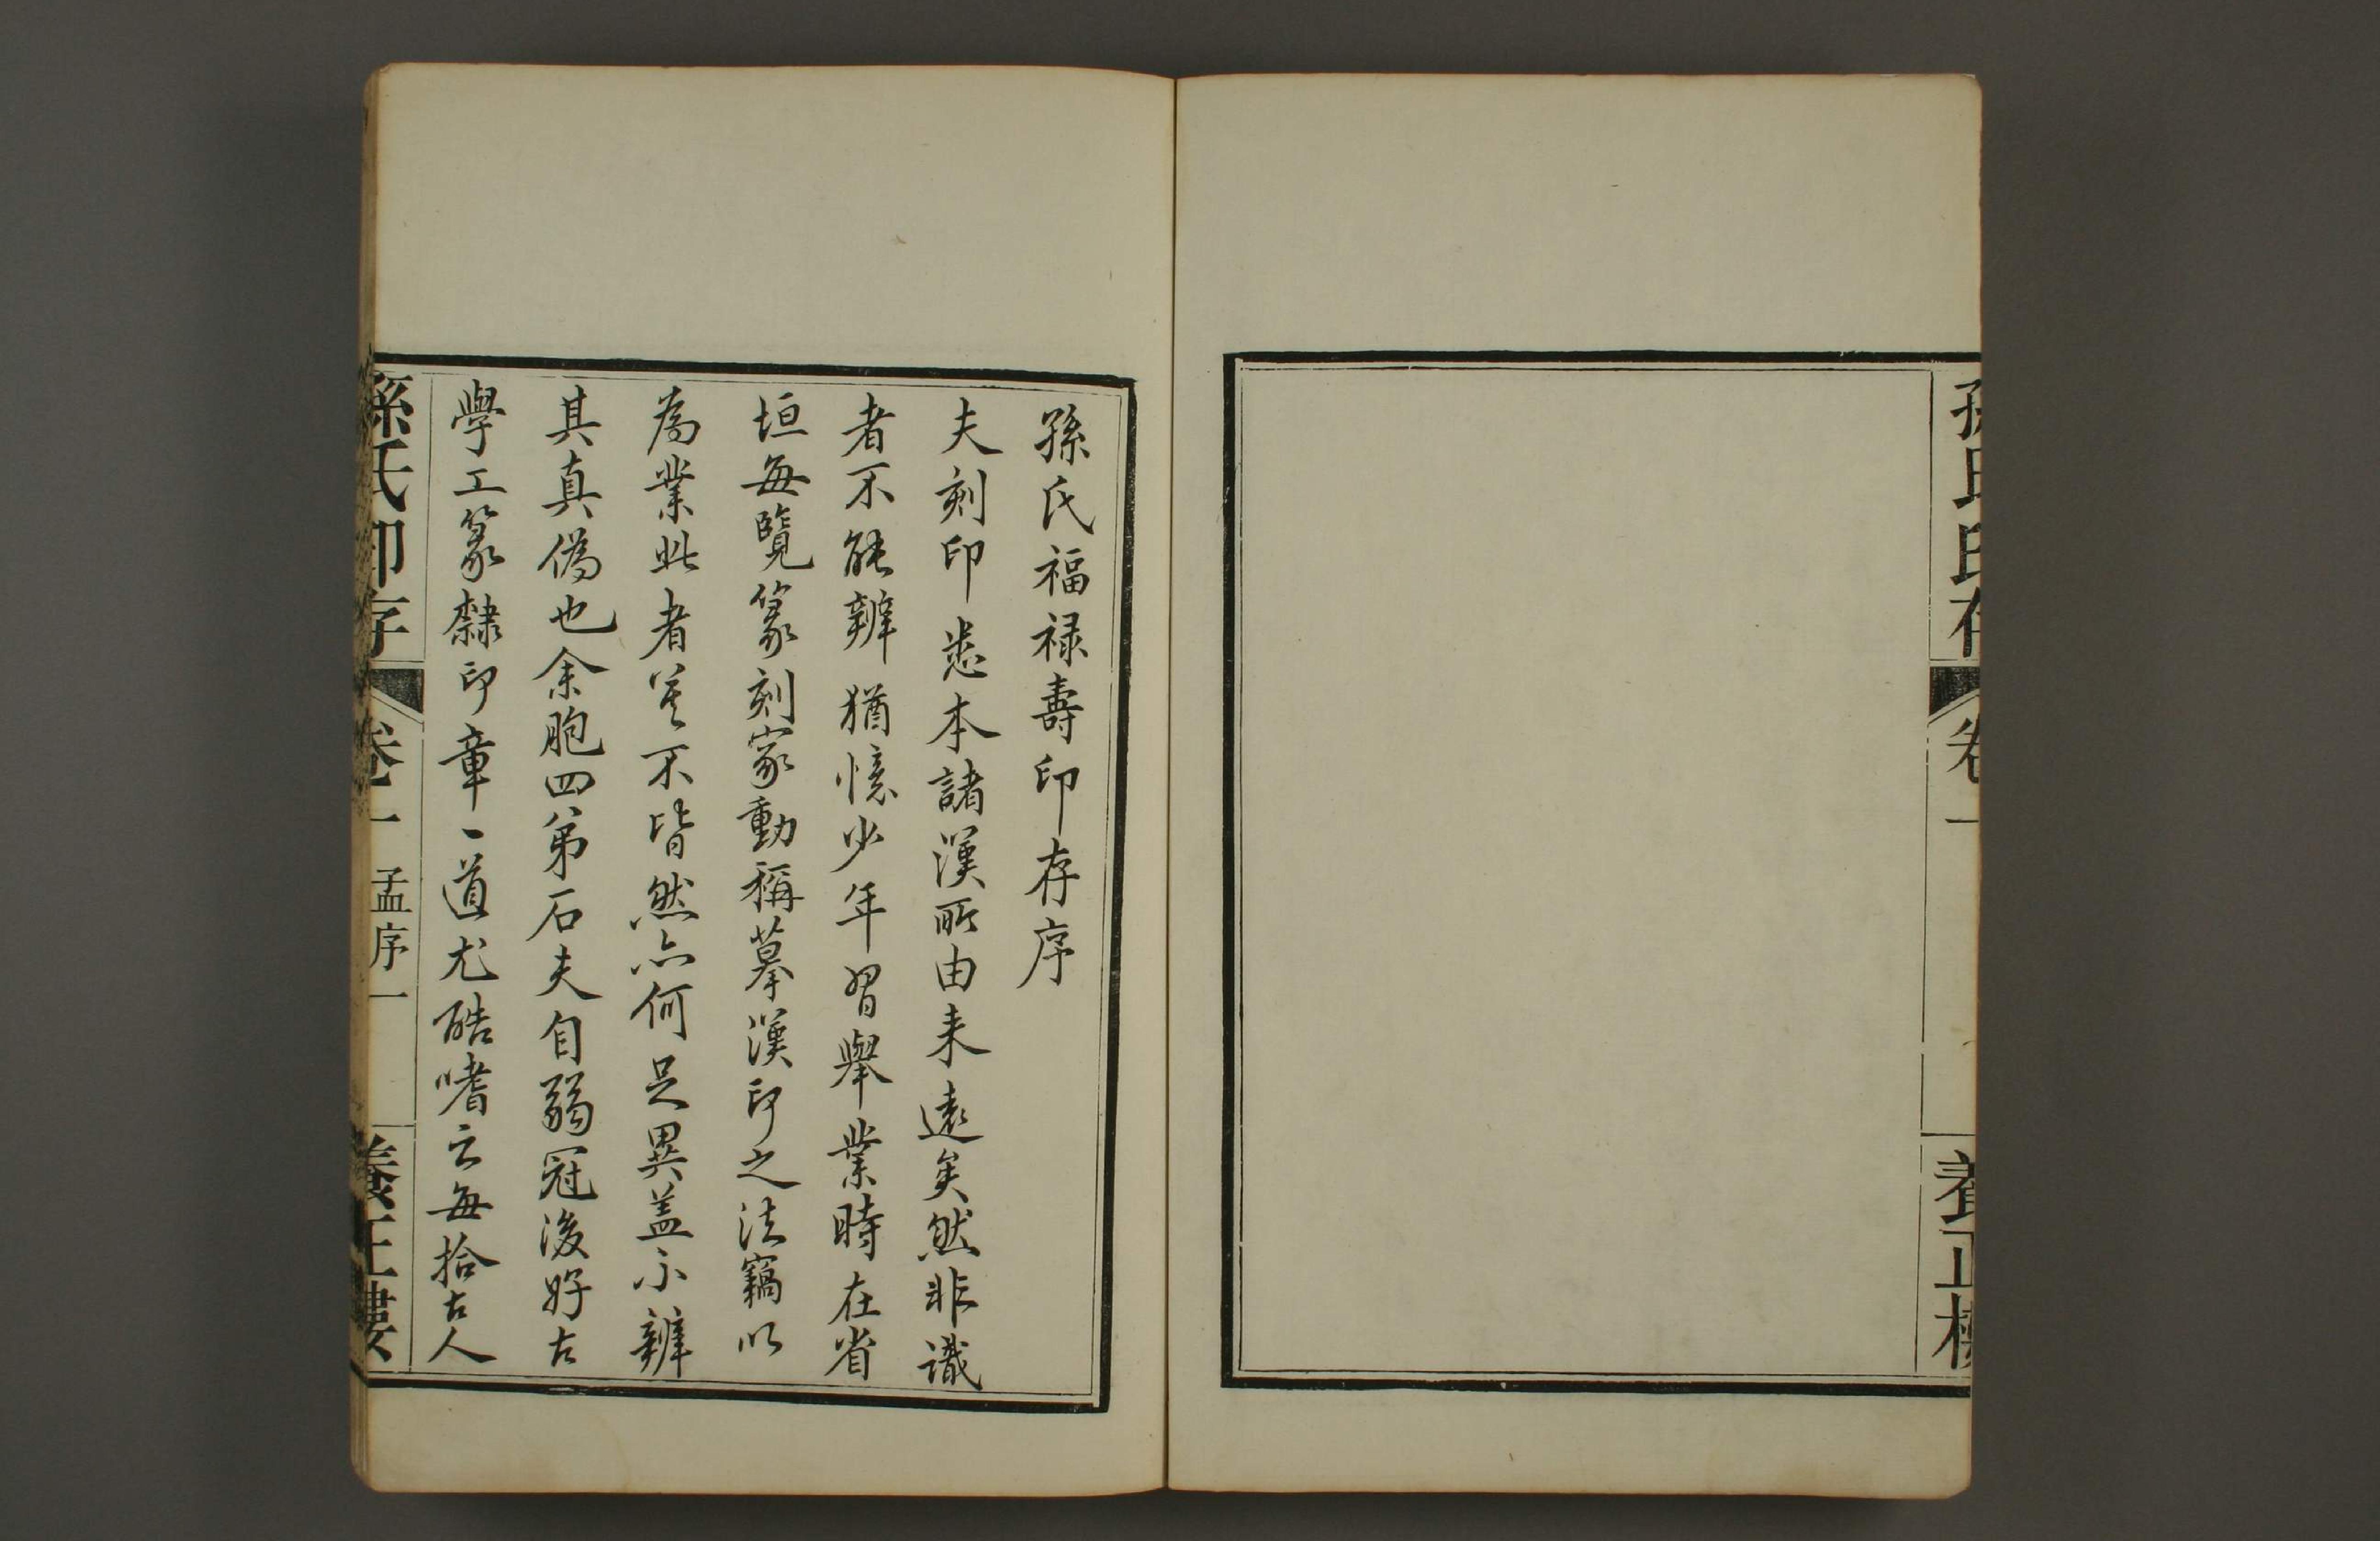 孫氏印存
卷一
養正樓
孫氏福祿壽印存序
夫刻印悉本諸漢所由来遠矣然非識
者不能辨猶憶少年習舉業時在省
垣每覽篆刻家動稱摹漢印之法竊以
為業此者莫不皆然亦何足異盖不辨
其真偽也余胞四弟石夫自弱冠後好古
學工篆隸印章一道尤酷嗜之每拾古人
孫氏印存
卷一
孟序一
養正樓